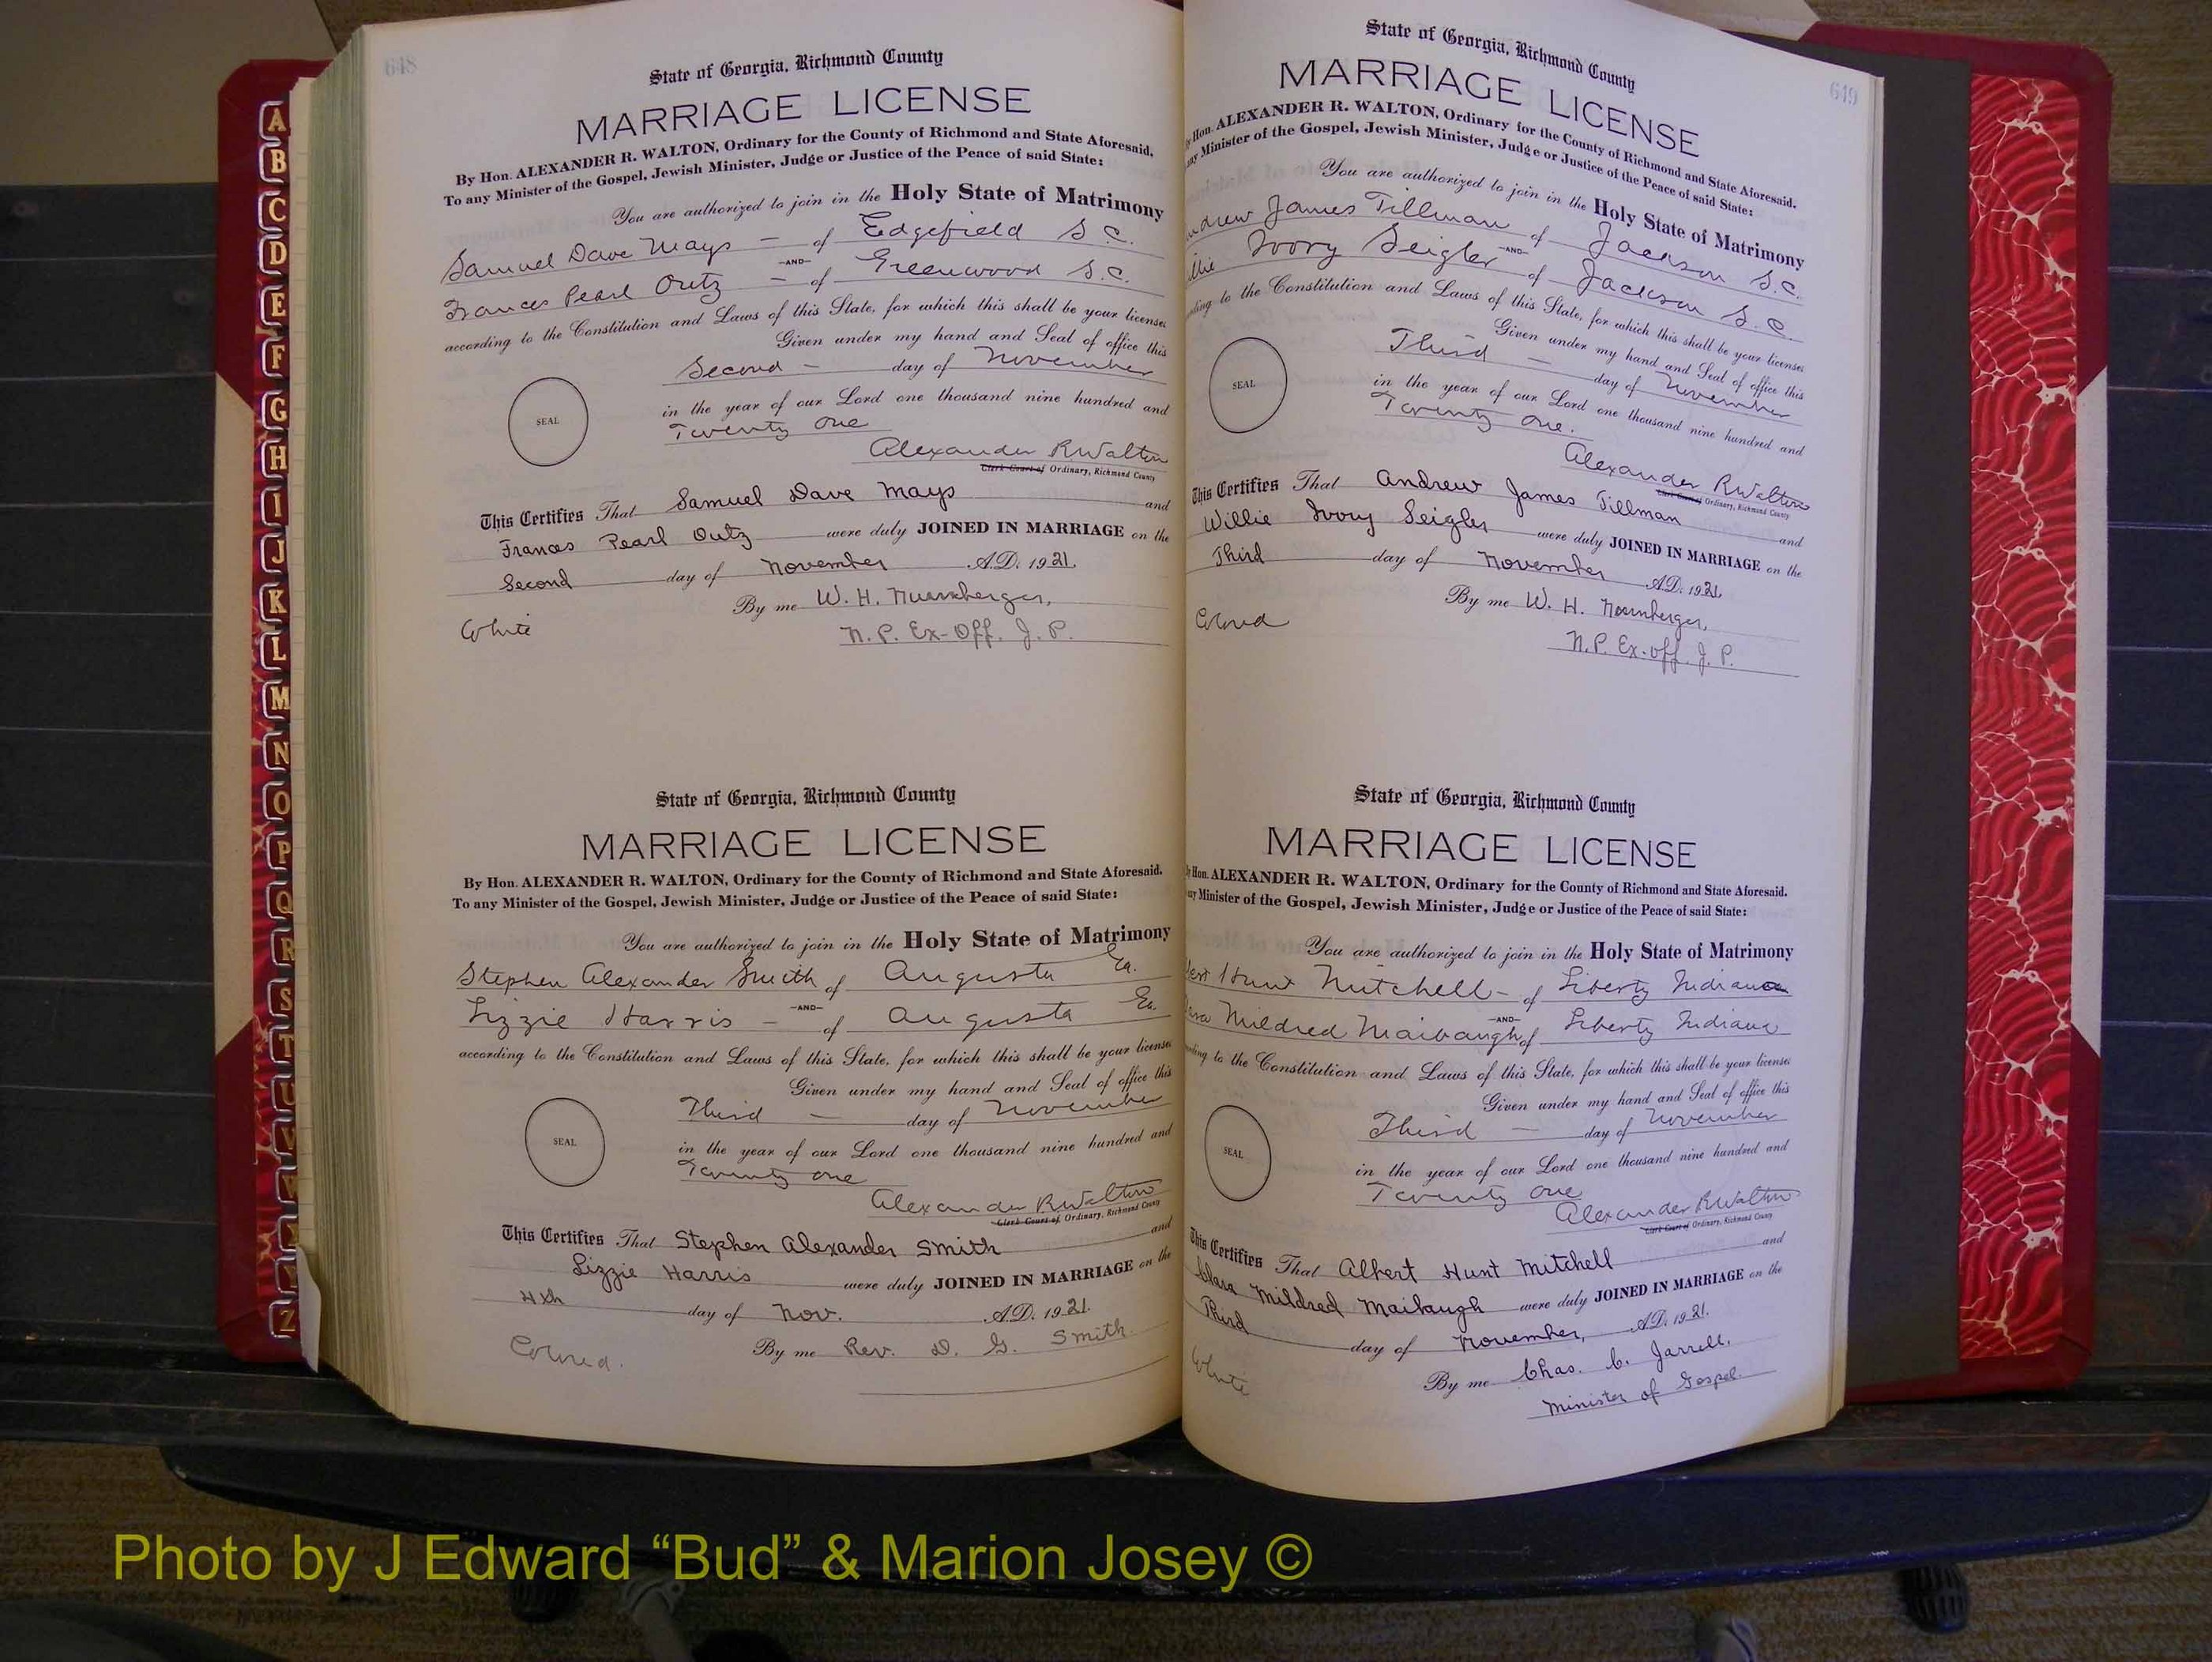 648
State of Georgia, Richmond County
MARRIAGE LICENSE
By Hon. ALEXANDER R. WALTON, Ordinary for the County of Richmond and State Aforesaid,
To any Minister of the Gospel, Jewish Minister, Judge or Justice of the Peace of said State:
You are authorized to join in the Holy State of Matrimony
Samuel Dave Mays — of Edgefield S.C.
—AND—
Frances Pearl Outz — of Greenwood S.C.
according to the Constitution and Laws of this State, for which this shall be your license
Given under my hand and Seal of office this
Second — day of November
SEAL
in the year of our Lord one thousand nine hundred and
Twenty One
Alexander R Walton
Clerk Court of Ordinary, Richmond County
This Certifies That Samuel Dave Mays and
Frances Pearl Outz were duly JOINED IN MARRIAGE on the
Second day of November A.D. 1921.
By me W. H. Nuernberger,
White
N.P. Ex-Off. J. P.
State of Georgia, Richmond County
MARRIAGE LICENSE
By Hon. ALEXANDER R. WALTON, Ordinary for the County of Richmond and State Aforesaid.
To any Minister of the Gospel, Jewish Minister, Judge or Justice of the Peace of said State:
You are authorized to join in the Holy State of Matrimony
Stephen Alexander Smith of Augusta Ga.
—AND—
Lizzie Harris — of Augusta Ga.
according to the Constitution and Laws of this State, for which this shall be your license
Given under my hand and Seal of office this
Third — day of November
SEAL
in the year of our Lord one thousand nine hundred and
Twenty one
Alexander R Walton
Clerk Court of Ordinary, Richmond County
This Certifies That Stephen Alexander Smith and
Lizzie Harris were duly JOINED IN MARRIAGE on the
4th day of Nov. A.D. 1921.
Colored.
By me Rev. D. G. Smith.
649
State of Georgia, Richmond County
MARRIAGE LICENSE
By Hon. ALEXANDER R. WALTON, Ordinary for the County of Richmond and State Aforesaid.
any Minister of the Gospel, Jewish Minister, Judge or Justice of the Peace of said State:
You are authorized to join in the Holy State of Matrimony
ndrew James Tillman of Jackson S.C.
—AND—
llie Ivory Seigler of Jackson S.C.
ording to the Constitution and Laws of this State, for which this shall be your license
Given under my hand and Seal of office this
Third — day of November
SEAL
in the year of our Lord one thousand nine hundred and
Twenty One.
Alexander R Walton
Clerk Court of Ordinary, Richmond County
This Certifies That Andrew James Tillman and
Willie Ivory Seigler were duly JOINED IN MARRIAGE on the
Third day of November A.D. 1921,
By me W. H. Nuernberger,
Colored
N.P. Ex-off. J. P.
State of Georgia, Richmond County
MARRIAGE LICENSE
y Hon. ALEXANDER R. WALTON, Ordinary for the County of Richmond and State Aforesaid.
ny Minister of the Gospel, Jewish Minister, Judge or Justice of the Peace of said State:
You are authorized to join in the Holy State of Matrimony
bert Hunt Mitchell — of Liberty Indiana
—AND—
ara Mildred Maibaugh of Liberty Indiana
ording to the Constitution and Laws of this State, for which this shall be your license
Given under my hand and Seal of office this
Third — day of November
SEAL
in the year of our Lord one thousand nine hundred and
Twenty One
Alexander R Walton
Clerk Court of Ordinary, Richmond County
This Certifies That Albert Hunt Mitchell and
Clara Mildred Maibaugh were duly JOINED IN MARRIAGE on the
Third day of November, A.D. 1921.
By me Chas. C. Jarrell.
White
Minister of Gospel.
A
B
C
D
E
F
G
H
I
J
K
L
M
N
O
P
Q
R
S
T
U
V
W
Z
Photo by J Edward “Bud” & Marion Josey ©